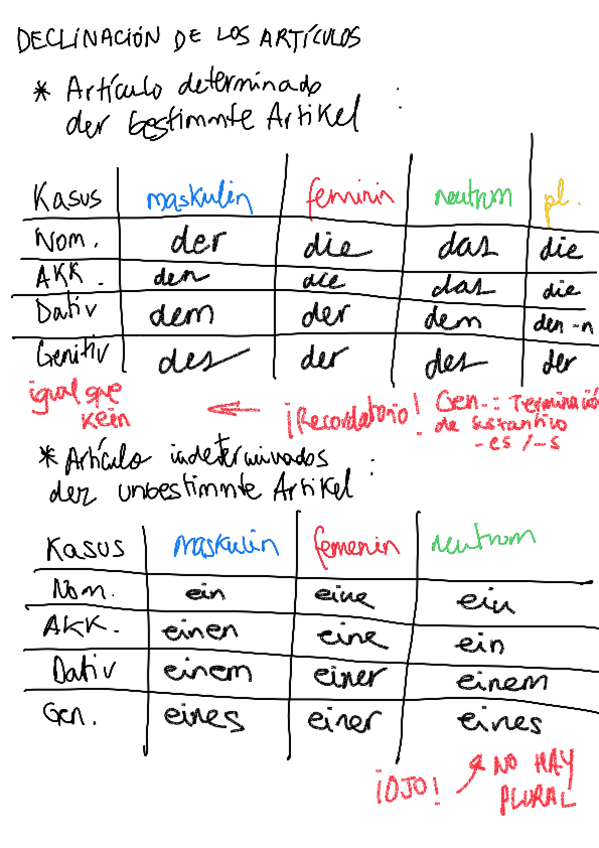 DECLINACIÓN DE LOS ARTÍCULOS
* Artículo determinado :
der bestimmte Artikel
Kasus maskulin feminin neutrum pl.
Nom. der die das die
AKK. den die das die
Dativ dem der dem den -n
Genitiv des der des der
igual que kein ← ¡Recordatorio! Gen.: Terminación
de sustantivo
-es /-s
* Artículo indeterminados :
der unbestimmte Artikel
Kasus maskulin femenin neutrum
Nom. ein eine ein
AKK. einen eine ein
Dativ einem einer einem
Gen. eines einer eines
¡OJO! NO HAY
PLURAL